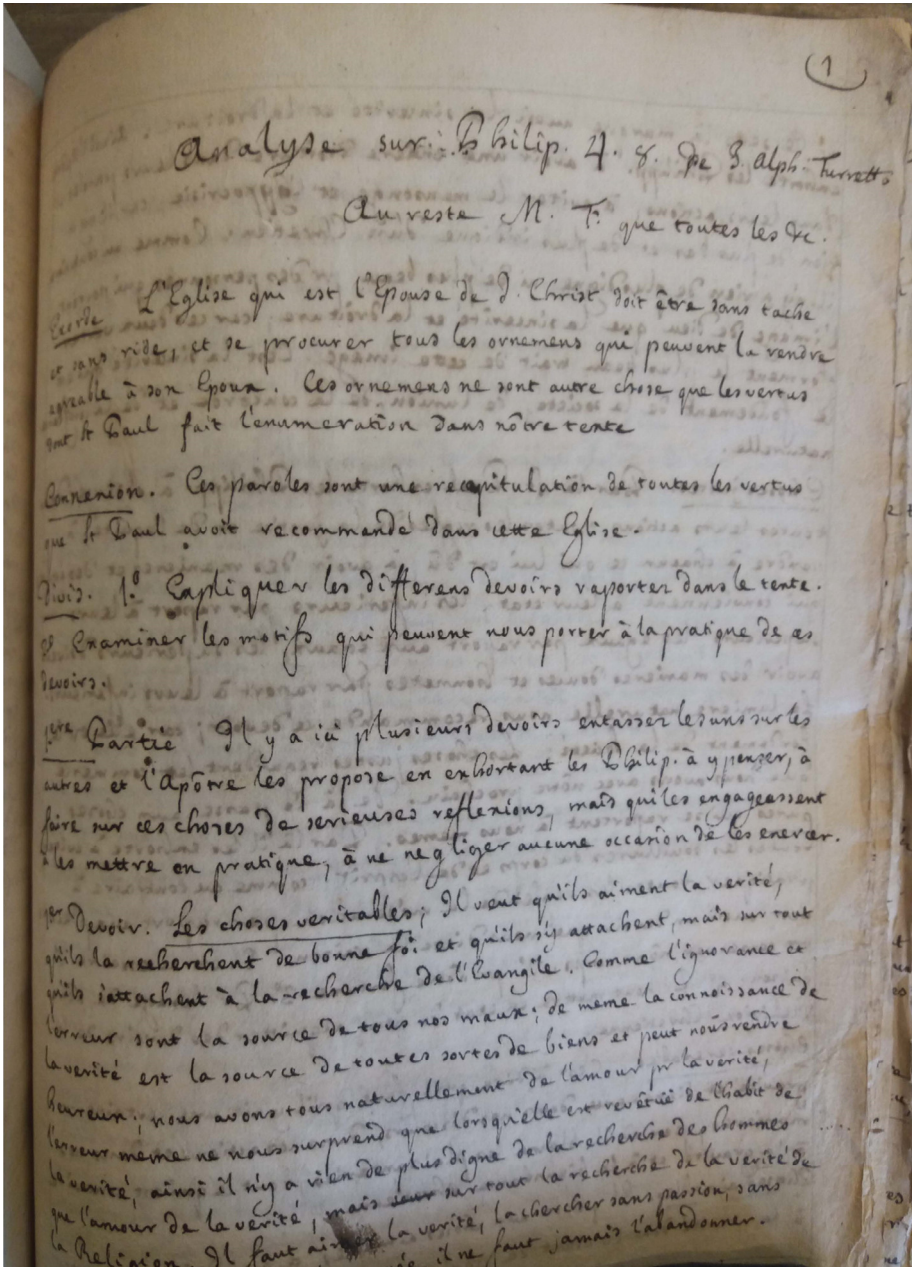 (1)
Analyse sur Philip. 4. 8. De J. Alph. Turrett.
Au reste M. F. que toutes les &c.
Exorde L'Eglise qui est l'Epouse de J. Christ doit être sans tache
et sans ride, et se procurer tous les ornemens qui peuvent la rendre
agréable à son Epoux. Ces ornemens ne sont autre chose que les vertus
dont St Paul fait l'enumeration dans nôtre texte
Connexion. Ces paroles sont une recapitulation de toutes les vertus
que St Paul avoit recommandé dans cette Eglise.
Divis. 1.° Expliquer les differens devoirs raportez dans le texte.
2° Examiner les motifs qui peuvent nous porter à la pratique de ces
devoirs.
1ere Partie Il y a ici plusieurs devoirs entassez les uns sur les
autres et l'Apôtre les propose en exhortant les Philip. à y penser, à
faire sur ces choses de serieuses reflexions, mais qui les engageassent
à les mettre en pratique, à ne negliger aucune occasion de les exercer.
1er Devoir. Les choses veritables; Il veut qu'ils aiment la verité,
qu'ils la recherchent de bonne foi et qu'ils s'y attachent, mais sur tout
qu'ils s'attachent à la recherche de l'Evangile. Comme l'ignorance et
l'erreur sont la source de tous nos maux; de meme la connoissance de
la verité est la source de toutes sortes de biens et peut nous rendre
heureux; nous avons tous naturellement de l'amour pr la verité,
l'erreur meme ne nous surprend que lorsqu'elle est revêtuë de l'habit de
la verité, ainsi il n'y a rien de plus digne de la recherche des hommes
que l'amour de la verité, mais sur tout la recherche de la verité de
la Religion. Il faut aimer la verité, la chercher sans passion, sans
il ne faut jamais l'abandonner.